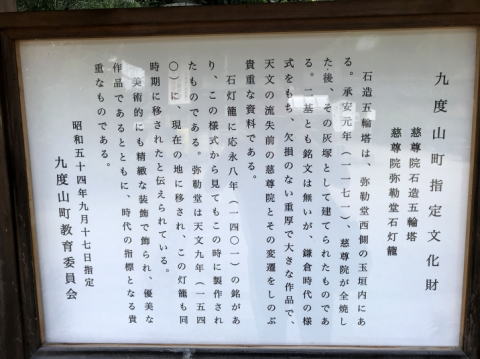 九度山町指定文化財
慈尊院石造五輪塔
慈尊院弥勒堂石灯籠
石造五輪塔は、弥勒堂西側の玉垣内にあ
る。承安元年（一一七一）、慈尊院が全焼し
た後、その灰塚として建てられたものであ
る。二基とも銘文は無いが、鎌倉時代の様
式をもち、欠損のない重厚で大きな作品で、
天文の流失前の慈尊院とその変遷をしのぶ
貴重な資料である。
石灯籠に応永八年（一四〇一）の銘があ
り、この様式から見てもこの時に製作され
たものである。弥勒堂は天文九年（一五四
〇）に、現在の地に移され、この灯籠も同
時期に移されたと伝えられている。
美術的にも精緻な装飾で飾られ、優美な
作品であるとともに、時代の指標となる貴
重なものである。
昭和五十四年九月十七日指定
九度山町教育委員会